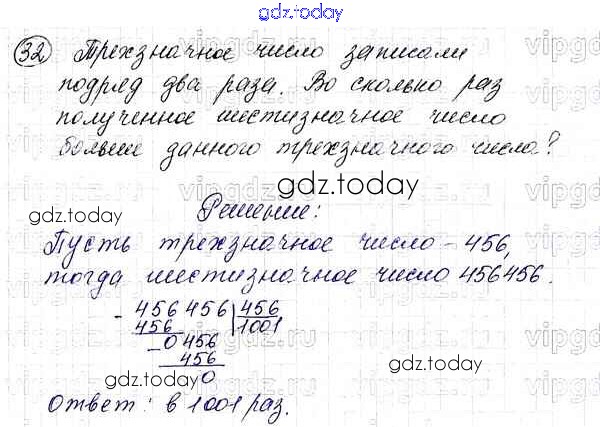 gdz.today
32 Трехзначное число записали
подряд два раза. Во сколько раз
полученное шестизначное число
больше данного трехзначного числа?
gdz.today
gdz.today
Решение:
Пусть трехзначное число - 456,
тогда шестизначное число 456456.
- 456456 | 456
456 | 1001
- 0456
456
0
gdz.today
gdz.today
Ответ: в 1001 раз.